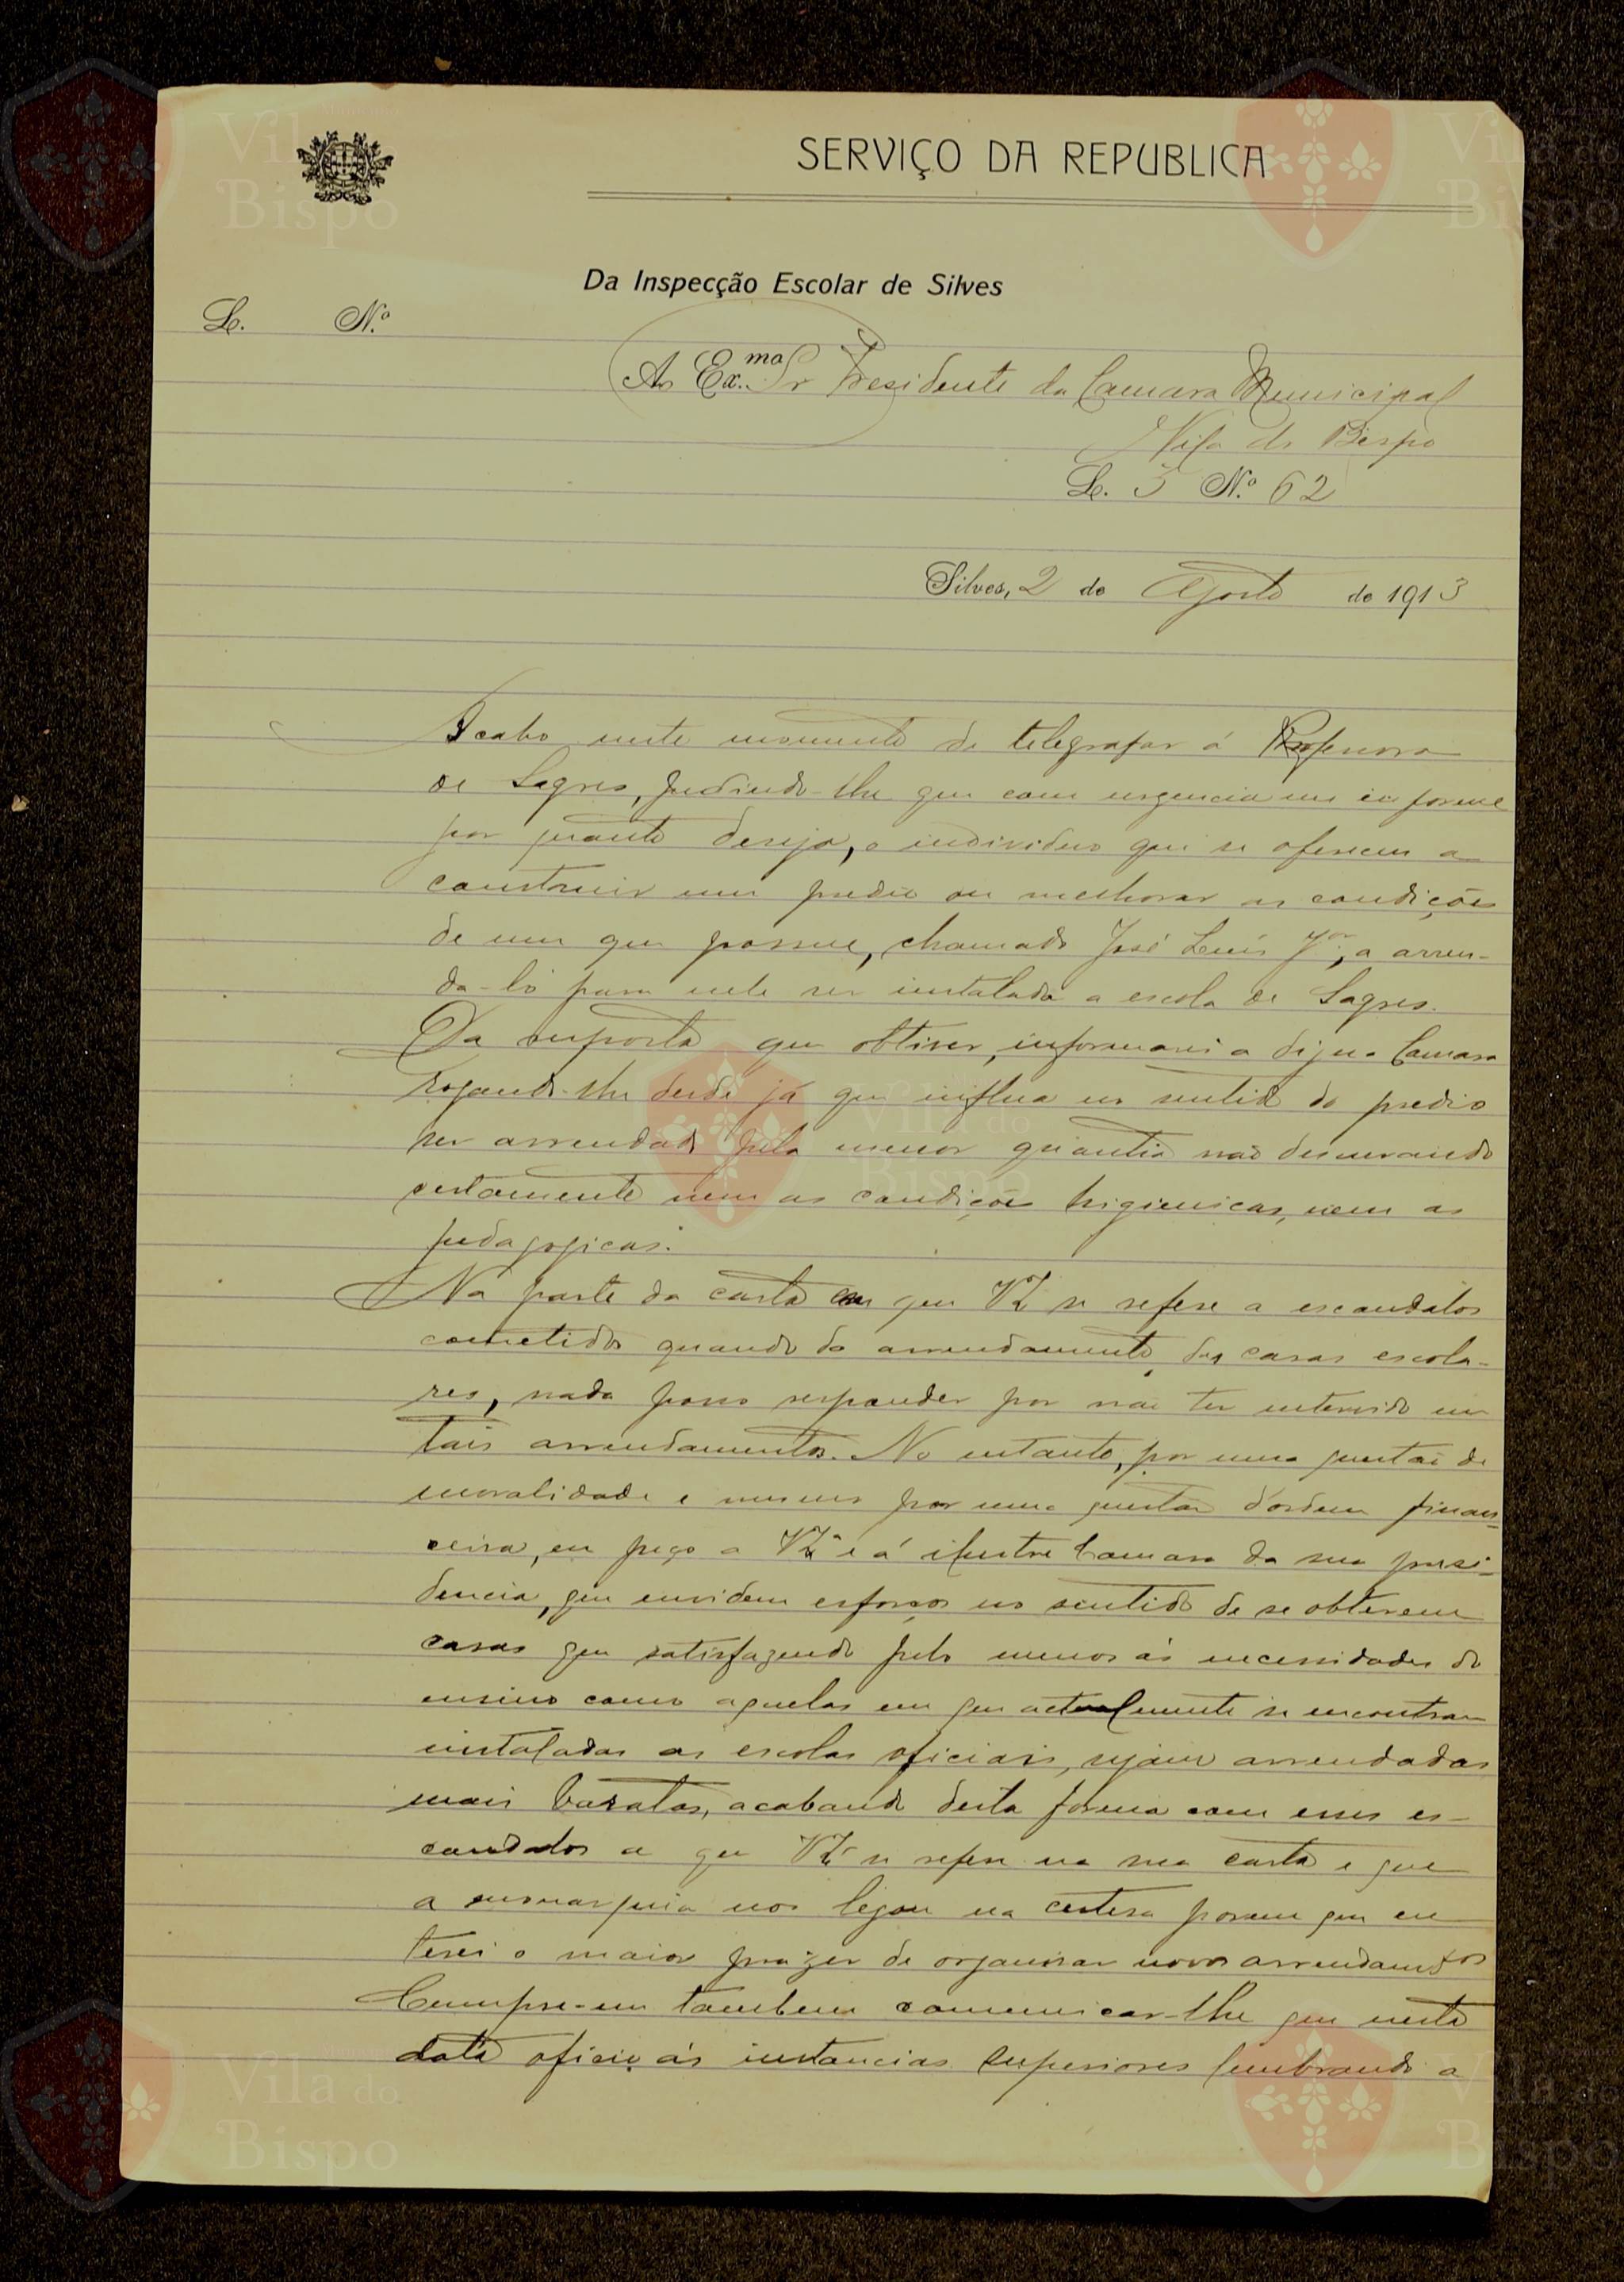 SERVIÇO DA REPUBLICA
Da Inspecção Escolar de Silves
L. N.º
Ao Ex.mo Sr Presidente da Camara Municipal
Vila do Bispo
L. 5 N.º 62
Silves, 2 de Agosto de 1913
Acabo neste momento de telegrafar á Professora
de Sagres, pedindo-lhe que com urgencia me informe
por quanto deseja, o individuo que se oferecem a
construir um predio ou melhorar as condições
de um que possue, chamado José Luis Jor, a arren-
da-lo para nele ser instalada a escola de Sagres.
Da resposta que obtiver, informarei a digna Camara
rogando-lhe desde já que influa no sentido do predio
ser arrendado pela menor quantia não descurando
certamente nem as condições higienicas, nem as
pedagogicas.
Na parte da carta em que V. Exª se refere a escandalos
cometidos quando do arrendamento das casas escola-
res, nada posso responder por não ter intervido em
tais arrendamentos. No entanto, por uma questão de
moralidade e mesmo por uma questão d'ordem finan-
ceira, eu peço a V. Exª e á ilustre Camara da sua presi-
dencia, que envidem esforços no sentido de se obterem
casas que satisfazendo pelo menos ás necessidades do
ensino como aquelas em que actualmente se encontram
instaladas as escolas oficiais, sejam arrendadas
mais baratas, acabando desta forma com esses es-
candalos a que V. Exª se refere na sua carta e que
a monarquia nos legou na certesa porem que eu
terei o maior prazer de organisar novos arrendamtos
Cumpre-me tambem comunicar-lhe que nesta
data oficio ás instancias superiores lembrando a
Vila do Bispo